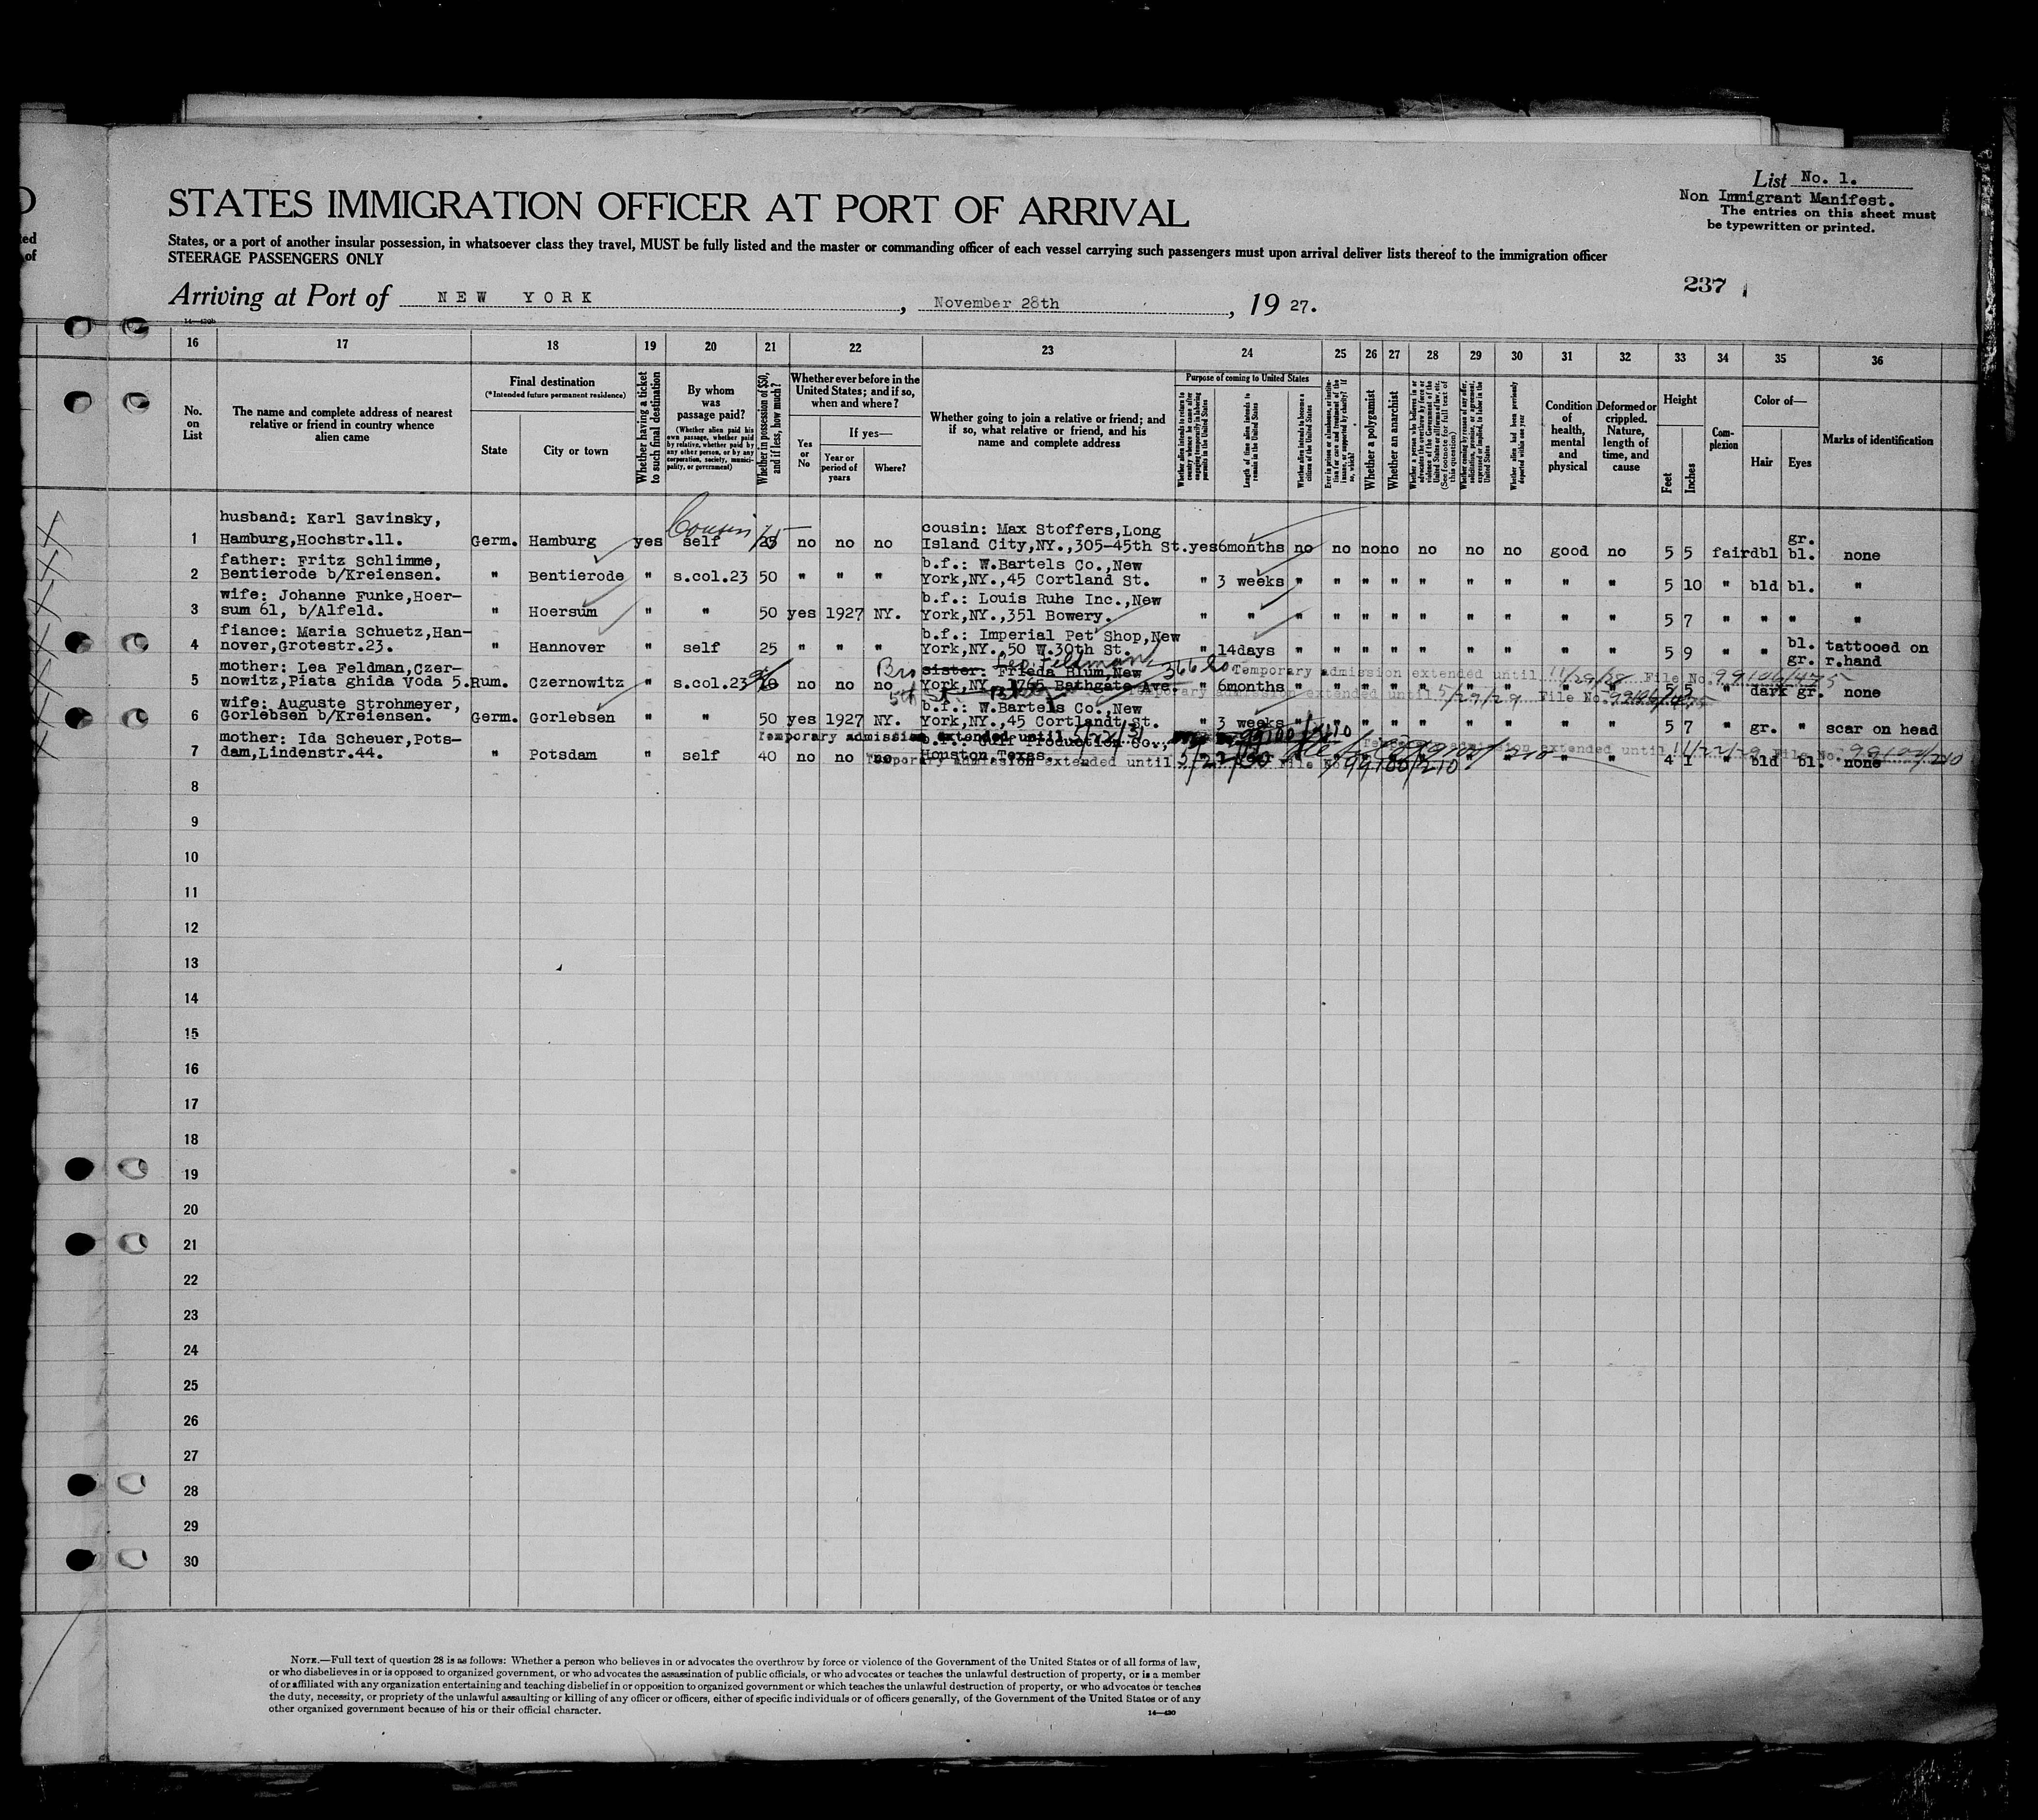 List No. 1.
Non Immigrant Manifest.
The entries on this sheet must
be typewritten or printed.
STATES IMMIGRATION OFFICER AT PORT OF ARRIVAL
States, or a port of another insular possession, in whatsoever class they travel, MUST be fully listed and the master or commanding officer of each vessel carrying such passengers must upon arrival deliver lists thereof to the immigration officer
STEERAGE PASSENGERS ONLY
237
Arriving at Port of NEW YORK, November 28th, 1927.
14—420b
16 17 18 19 20 21 22 23 24 25 26 27 28 29 30 31 32 33 34 35 36
No. on List
The name and complete address of nearest relative or friend in country whence alien came
Final destination
(*Intended future permanent residence)
State
City or town
Whether having a ticket to such final destination
By whom was passage paid?
(Whether alien paid his own passage, whether paid by relative, whether paid by any other person, or by any corporation, society, municipality, or government)
Whether in possession of $50, and if less, how much?
Whether ever before in the United States; and if so, when and where?
Yes or No
If yes—
Year or period of years
Where?
Whether going to join a relative or friend; and if so, what relative or friend, and his name and complete address
Purpose of coming to United States
Length of time alien intends to remain in the United States
Whether alien intends to become a citizen of the United States
Whether a polygamist
Whether an anarchist
Condition of health, mental and physical
Deformed or crippled. Nature, length of time, and cause
Height
Feet
Inches
Complexion
Color of—
Hair
Eyes
Marks of identification
1 husband: Karl Savinsky, Hamburg,Hochstr.11. Germ. Hamburg yes self Cousin 25 no no no cousin: Max Stoffers,Long Island City,NY.,305-45th St. yes 6months no no no no no no no good no 5 5 fair dbl gr. bl. none
2 father: Fritz Schlimme, Bentierode b/Kreiensen. " Bentierode " s.col.23 50 " " " b.f.: W.Bartels Co.,New York,NY.,45 Cortland St. " 3 weeks " " " " " " " " " 5 10 " bld bl. "
3 wife: Johanne Funke,Hoersum 61, b/Alfeld. " Hoersum " " 50 yes 1927 NY. b.f.: Louis Ruhe Inc.,New York,NY.,351 Bowery. " " " " " " " " " " " 5 7 " " " "
4 fiance: Maria Schuetz,Hannover,Grotestr.23. " Hannover " self 25 " " " b.f.: Imperial Pet Shop,New York,NY.,50 W.30th St. " 14days " " " " " " " " " 5 9 " " bl. gr. tattooed on r.hand
5 mother: Lea Feldman,Czernowitz,Piata ghida Voda 5. Rum. Czernowitz " s.col.23 no no no Bro Leo Feldman 366 sister: Frieda Blum,New York,NY. 1765 Bathgate Ave. " 6months " " " " " " " " " 5 5 " dark gr. none
Temporary admission extended until 11/29/28 File No. 99106/475
Temporary admission extended until 5/29/29 File No. 99106/475
6 wife: Auguste Strohmeyer, Gorlebsen b/Kreiensen. Germ. Gorlebsen " " 50 yes 1927 NY. b.f.: W.Bartels Co.,New York,NY.,45 Cortlandt St. " 3 weeks " " " " " " " " " 5 7 " gr. " scar on head
Temporary admission extended until 5/22/31
7 mother: Ida Scheuer,Potsdam,Lindenstr.44. " Potsdam " self 40 no no no b.f.: Gulf Production Co., Houston,Texas. 4 1 " bld bl. none
extended until 11/22/29 File No. 99100/210
Temporary admission extended until 5/22/30 File No. 99100/210
8
9
10
11
12
13
14
15
16
17
18
19
20
21
22
23
24
25
26
27
28
29
30
NOTE.—Full text of question 28 is as follows: Whether a person who believes in or advocates the overthrow by force or violence of the Government of the United States or of all forms of law,
or who disbelieves in or is opposed to organized government, or who advocates the assassination of public officials, or who advocates or teaches the unlawful destruction of property, or is a member
of or affiliated with any organization entertaining and teaching disbelief in or opposition to organized government or which teaches the unlawful destruction of property, or who advocates or teaches
the duty, necessity, or propriety of the unlawful assaulting or killing of any officer or officers, either of specific individuals or of officers generally, of the Government of the United States or of any
other organized government because of his or their official character.
14—420